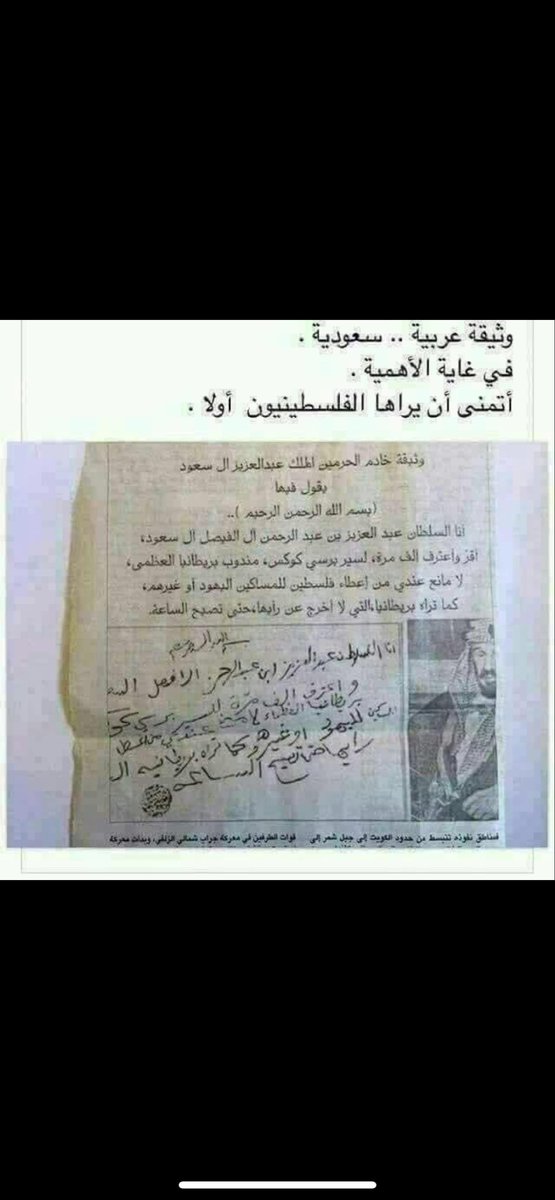 وثيقة عربية .. سعودية .
في غاية الأهمية .
أتمنى أن يراها الفلسطينيون أولا .
وثيقة خادم الحرمين الملك عبدالعزيز ال سعود
يقول فيها
(بسم الله الرحمن الرحيم )..
أنا السلطان عبد العزيز بن عبد الرحمن آل الفيصل آل سعود،
أقرّ وأعترف ألف مرة، لسير برسي كوكس، مندوب بريطانيا العظمى،
لا مانع عندي من إعطاء فلسطين للمساكين اليهود أو غيرهم،
كما تراه بريطانيا،التي لا أخرج عن رأيها،حتى تصبح الساعة.
انا السلطان عبد العزيز ابن عبد الرحمن
واعترف الف مرة للسير برسي
بريطانيا العظماء لا مانع عندي
لليهود او غيرهم كما تراه بريطانيه
رايها حتى تصبح الساعه
فمناطق نفوذه تنبسط من حدود الكويت إلى جبل شمر إلى
قوات الطرفين في معركة جراب شمالي الزلفي، وبدأت معركة